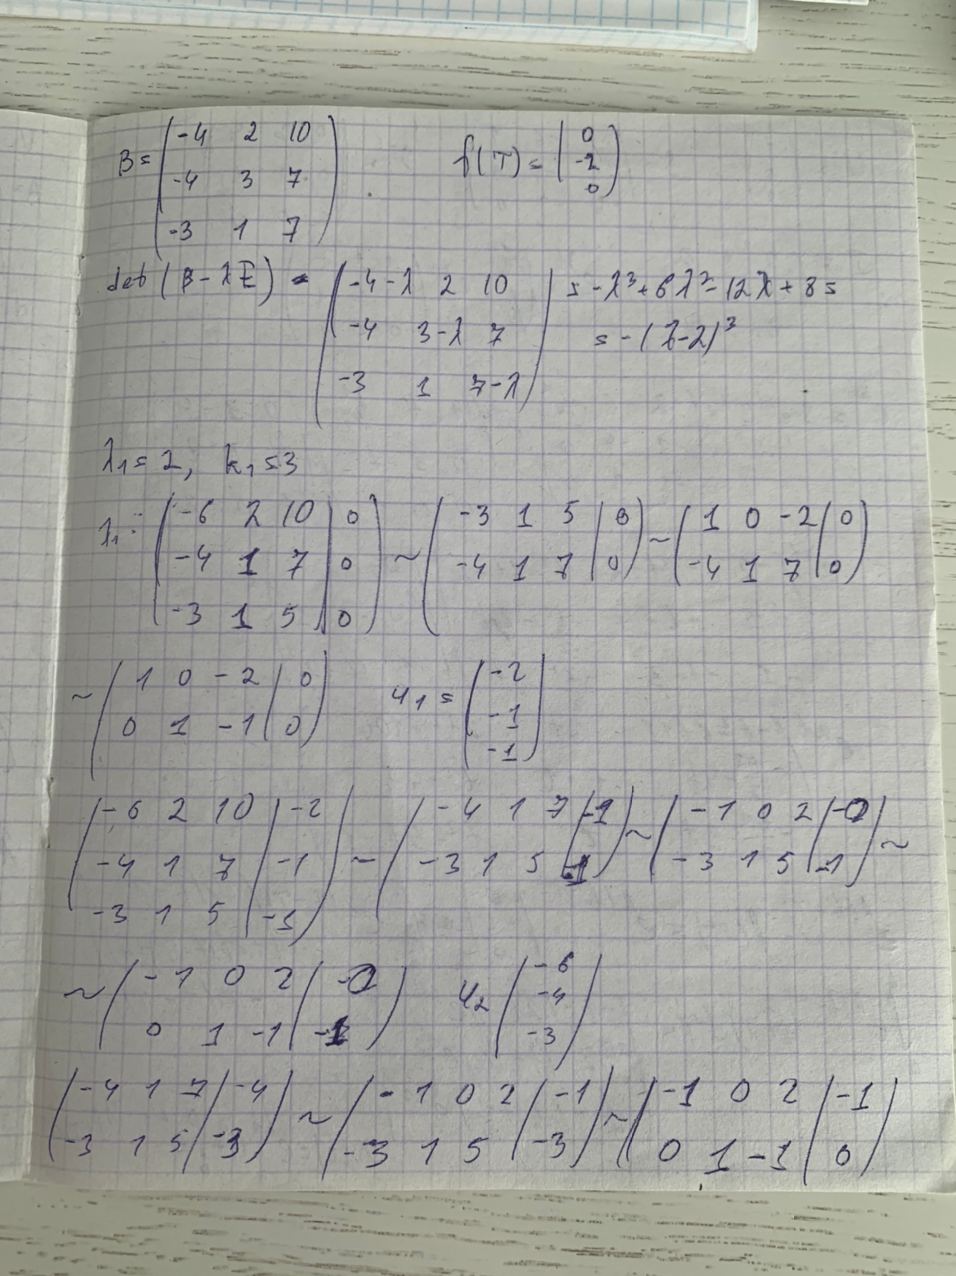 B = (-4 2 10
-4 3 7
-3 1 7)
f(T) = (0
-2
0)
det(B - λE) = (-4-λ 2 10
-4 3-λ 7
-3 1 7-λ) = -λ³+6λ²-12λ+8=
= -(λ-2)³
λ₁=2, k₁=3
λ₁: (-6 2 10 | 0
-4 1 7 | 0
-3 1 5 | 0) ~ (-3 1 5 | 0
-4 1 7 | 0) ~ (1 0 -2 | 0
-4 1 7 | 0)
~ (1 0 -2 | 0
0 1 -1 | 0)
u₁ = (-2
-1
-1)
(-6 2 10 | -2
-4 1 7 | -1
-3 1 5 | -1) ~ (-4 1 7 | -1
-3 1 5 | -1) ~ (-1 0 2 | -0
-3 1 5 | -1) ~
~ (-1 0 2 | -0
0 1 -1 | -1)
u₂ (-6
-4
-3)
(-4 1 7 | -4
-3 1 5 | -3) ~ (-1 0 2 | -1
-3 1 5 | -3) ~ (-1 0 2 | -1
0 1 -1 | 0)